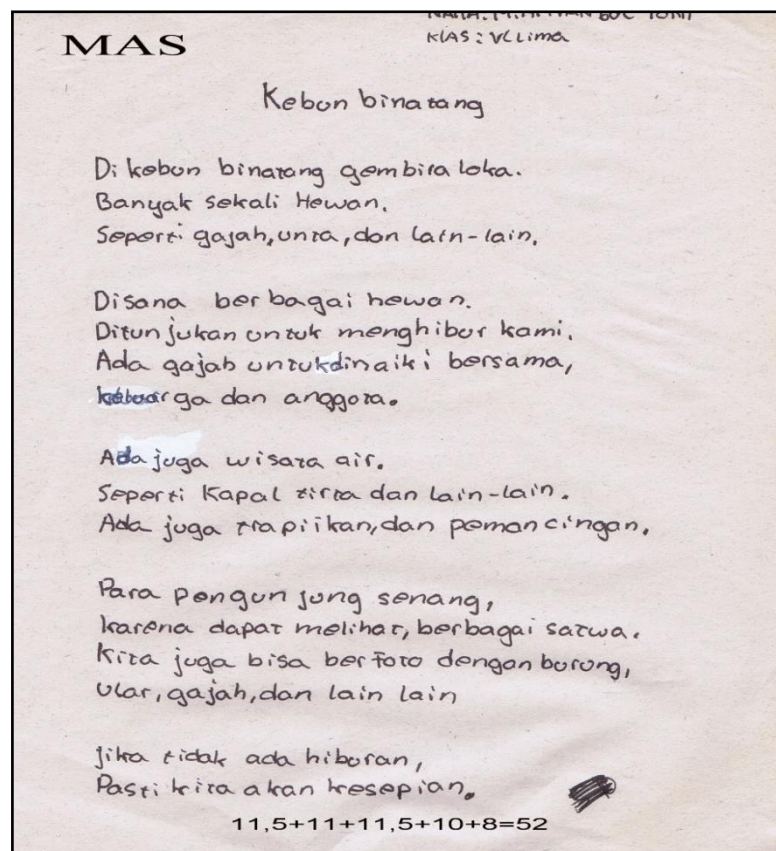 MAS
KlAS : V(Lima
Kebun binatang
Di kebun binatang gembira loka.
Banyak sekali Hewan.
Seperti gajah, unta, dan lain-lain.
Disana berbagai hewan.
Ditunjukan untuk menghibur kami.
Ada gajah untukdinaiki bersama,
keluarga dan anggota.
Ada juga wisata air.
Seperti Kapal tirta dan lain-lain.
Ada juga trapiikan, dan pemancingan.
Para pengunjung senang,
karena dapat melihat, berbagai satwa.
Kita juga bisa berfoto dengan burung,
ular, gajah, dan lain lain
Jika tidak ada hiburan,
Pasti kita akan kesepian.
11,5+11+11,5+10+8=52